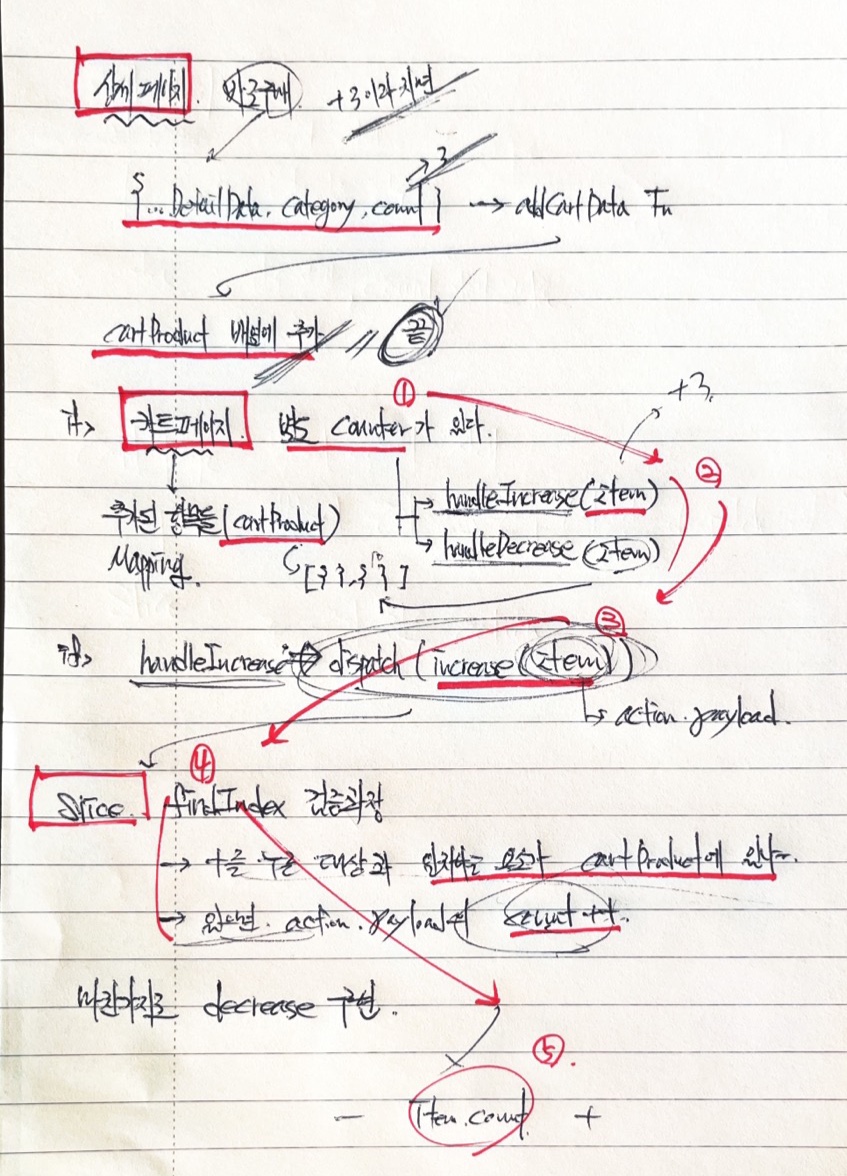 상세페이지. 바로구매 +3이라 치면
→ 3
{...DetailData, category, count} → addCartData Fn
cartProduct 배열에 추가 // 끝
①
카트페이지. 별도 counter가 있다.
+3.
②
추가된 항목들(cartProduct)
Mapping.
[{ }, { }]
handleIncrease(item)
handleDecrease(item)
③
handleIncrease → dispatch(increase(item))
↳ action.payload.
④
Slice. findIndex 검증과정
→ +를 누른 대상과 일치하는 요소가 cartProduct에 있나~.
→ 있으면. action.payload의 count++.
마찬가지로 decrease 구현.
⑤.
− Item.count. +